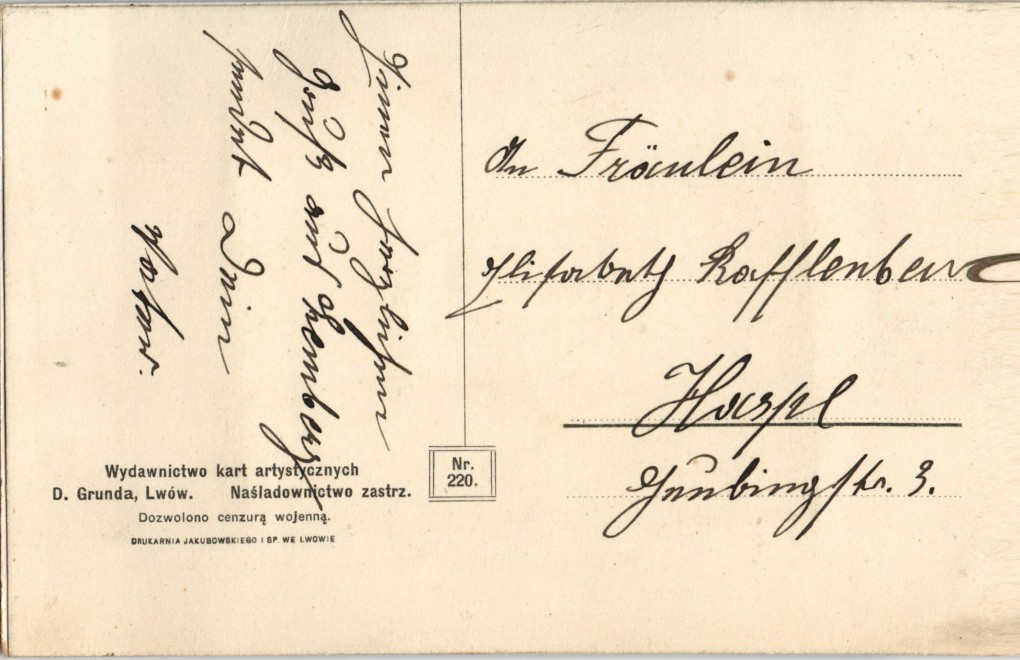 Einen herzlichen
Gruß aus Lemberg
sendet Dein
Vater.
An Fräulein
Elisabeth Rafflenbeul
Haspe
Heubingstr. 3.
Wydawnictwo kart artystycznych
D. Grunda, Lwów. Naśladownictwo zastrz.
Dozwolono cenzurą wojenną.
DRUKARNIA JAKUBOWSKIEGO I SP. WE LWOWIE
Nr.
220.